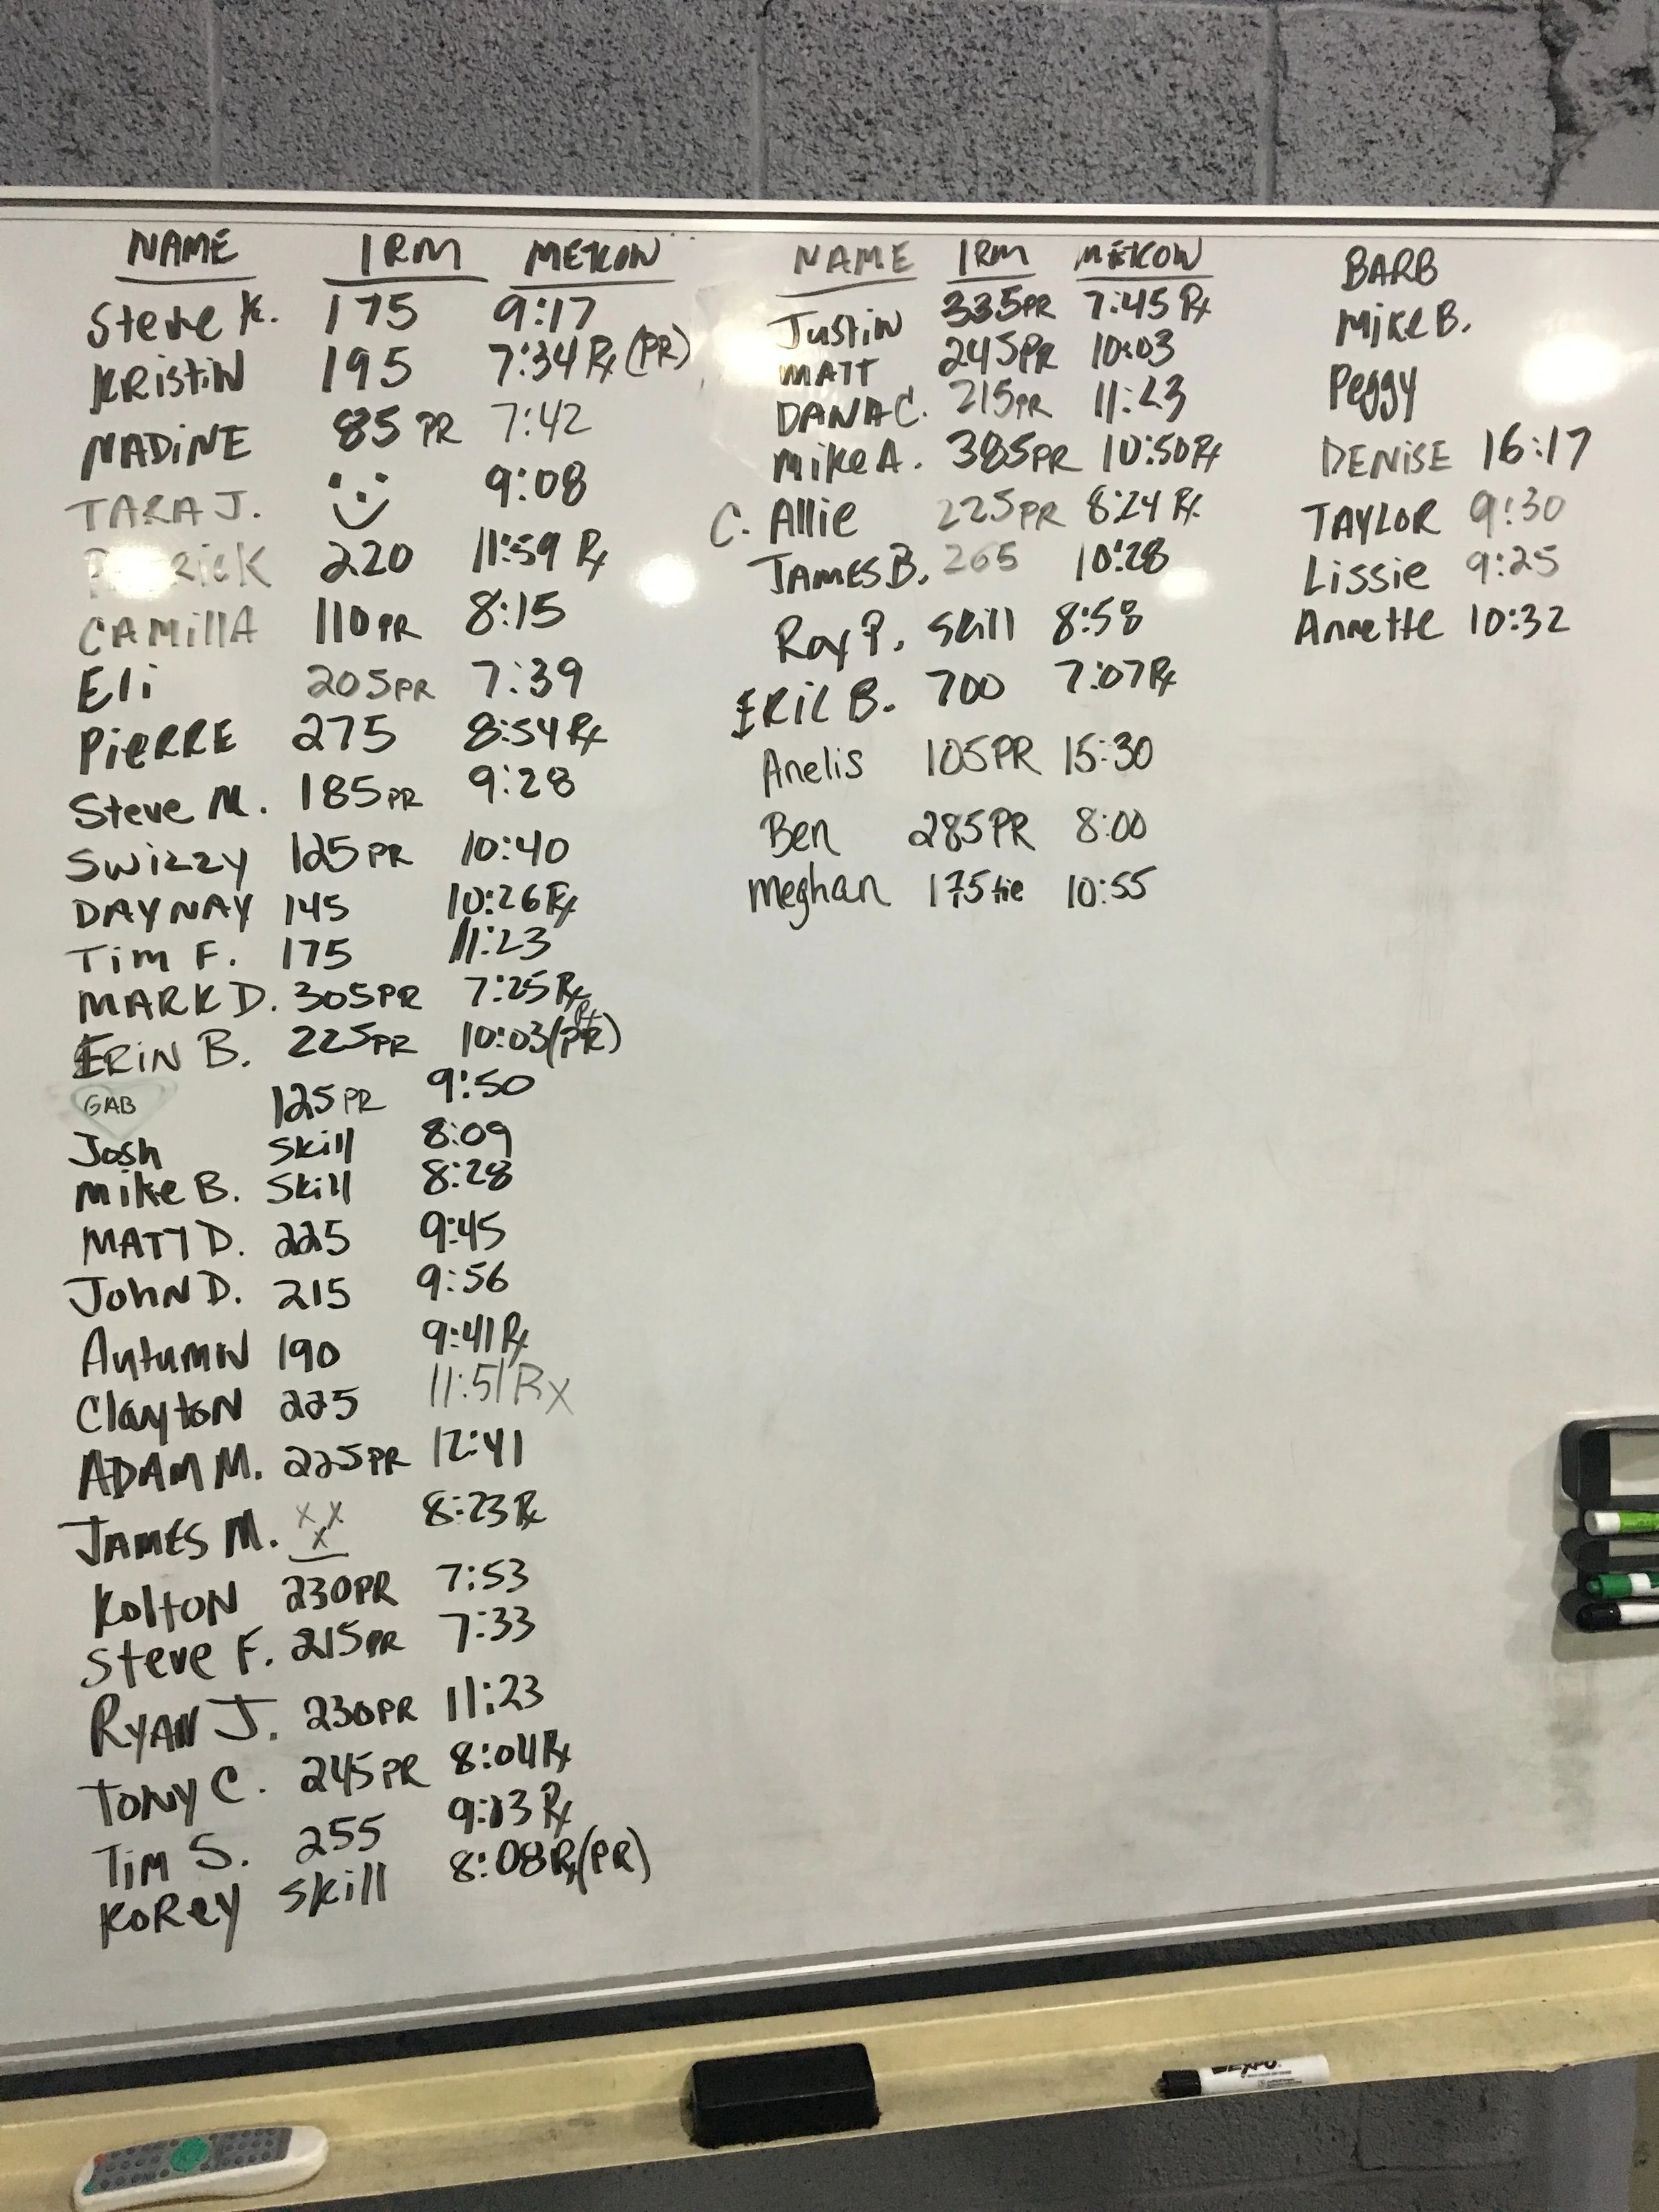 NAME 1RM METCON
Steve K. 175 9:17
KRISTIN 195 7:34 Rx (PR)
NADINE 85 PR 7:42
TARA J. 9:08
220 11:59 Rx
CAMILLA 110 PR 8:15
Eli 205 PR 7:39
PIERRE 275 8:54 Rx
Steve M. 185 PR 9:28
SWIZZY 125 PR 10:40
DAYNAY 145 10:26 Rx
Tim F. 175 11:23
MARK D. 305 PR 7:25 Rx
ERIN B. 225 PR 10:03 (PR) Rx
GAB 125 PR 9:50
Josh Skill 8:09
Mike B. Skill 8:28
MATT D. 225 9:45
JOHN D. 215 9:56
Autumn 190 9:41 Rx
Clayton 225 11:51 Rx
ADAM M. 225 PR 12:41
JAMES M. X X X 8:23 Rx
Kolton 230 PR 7:53
Steve F. 215 PR 7:33
RYAN J. 230 PR 11:23
TONY C. 245 PR 8:04 Rx
Tim S. 255 9:13 Rx
KOREY Skill 8:08 Rx (PR)
NAME 1RM METCON
Justin 335 PR 7:45 Rx
MATT 245 PR 10:03
DANA C. 215 PR 11:23
Mike A. 385 PR 10:50 Rx
C. Allie 225 PR 8:24 Rx
JAMES B. 265 10:28
Roy P. Skill 8:58
ERIC B. 700 7:07 Rx
Anelis 105 PR 15:30
Ben 285 PR 8:00
Meghan 175 tie 10:55
BARB
Mike B.
Peggy
DENISE 16:17
TAYLOR 9:30
Lissie 9:25
Annette 10:32
EXPO